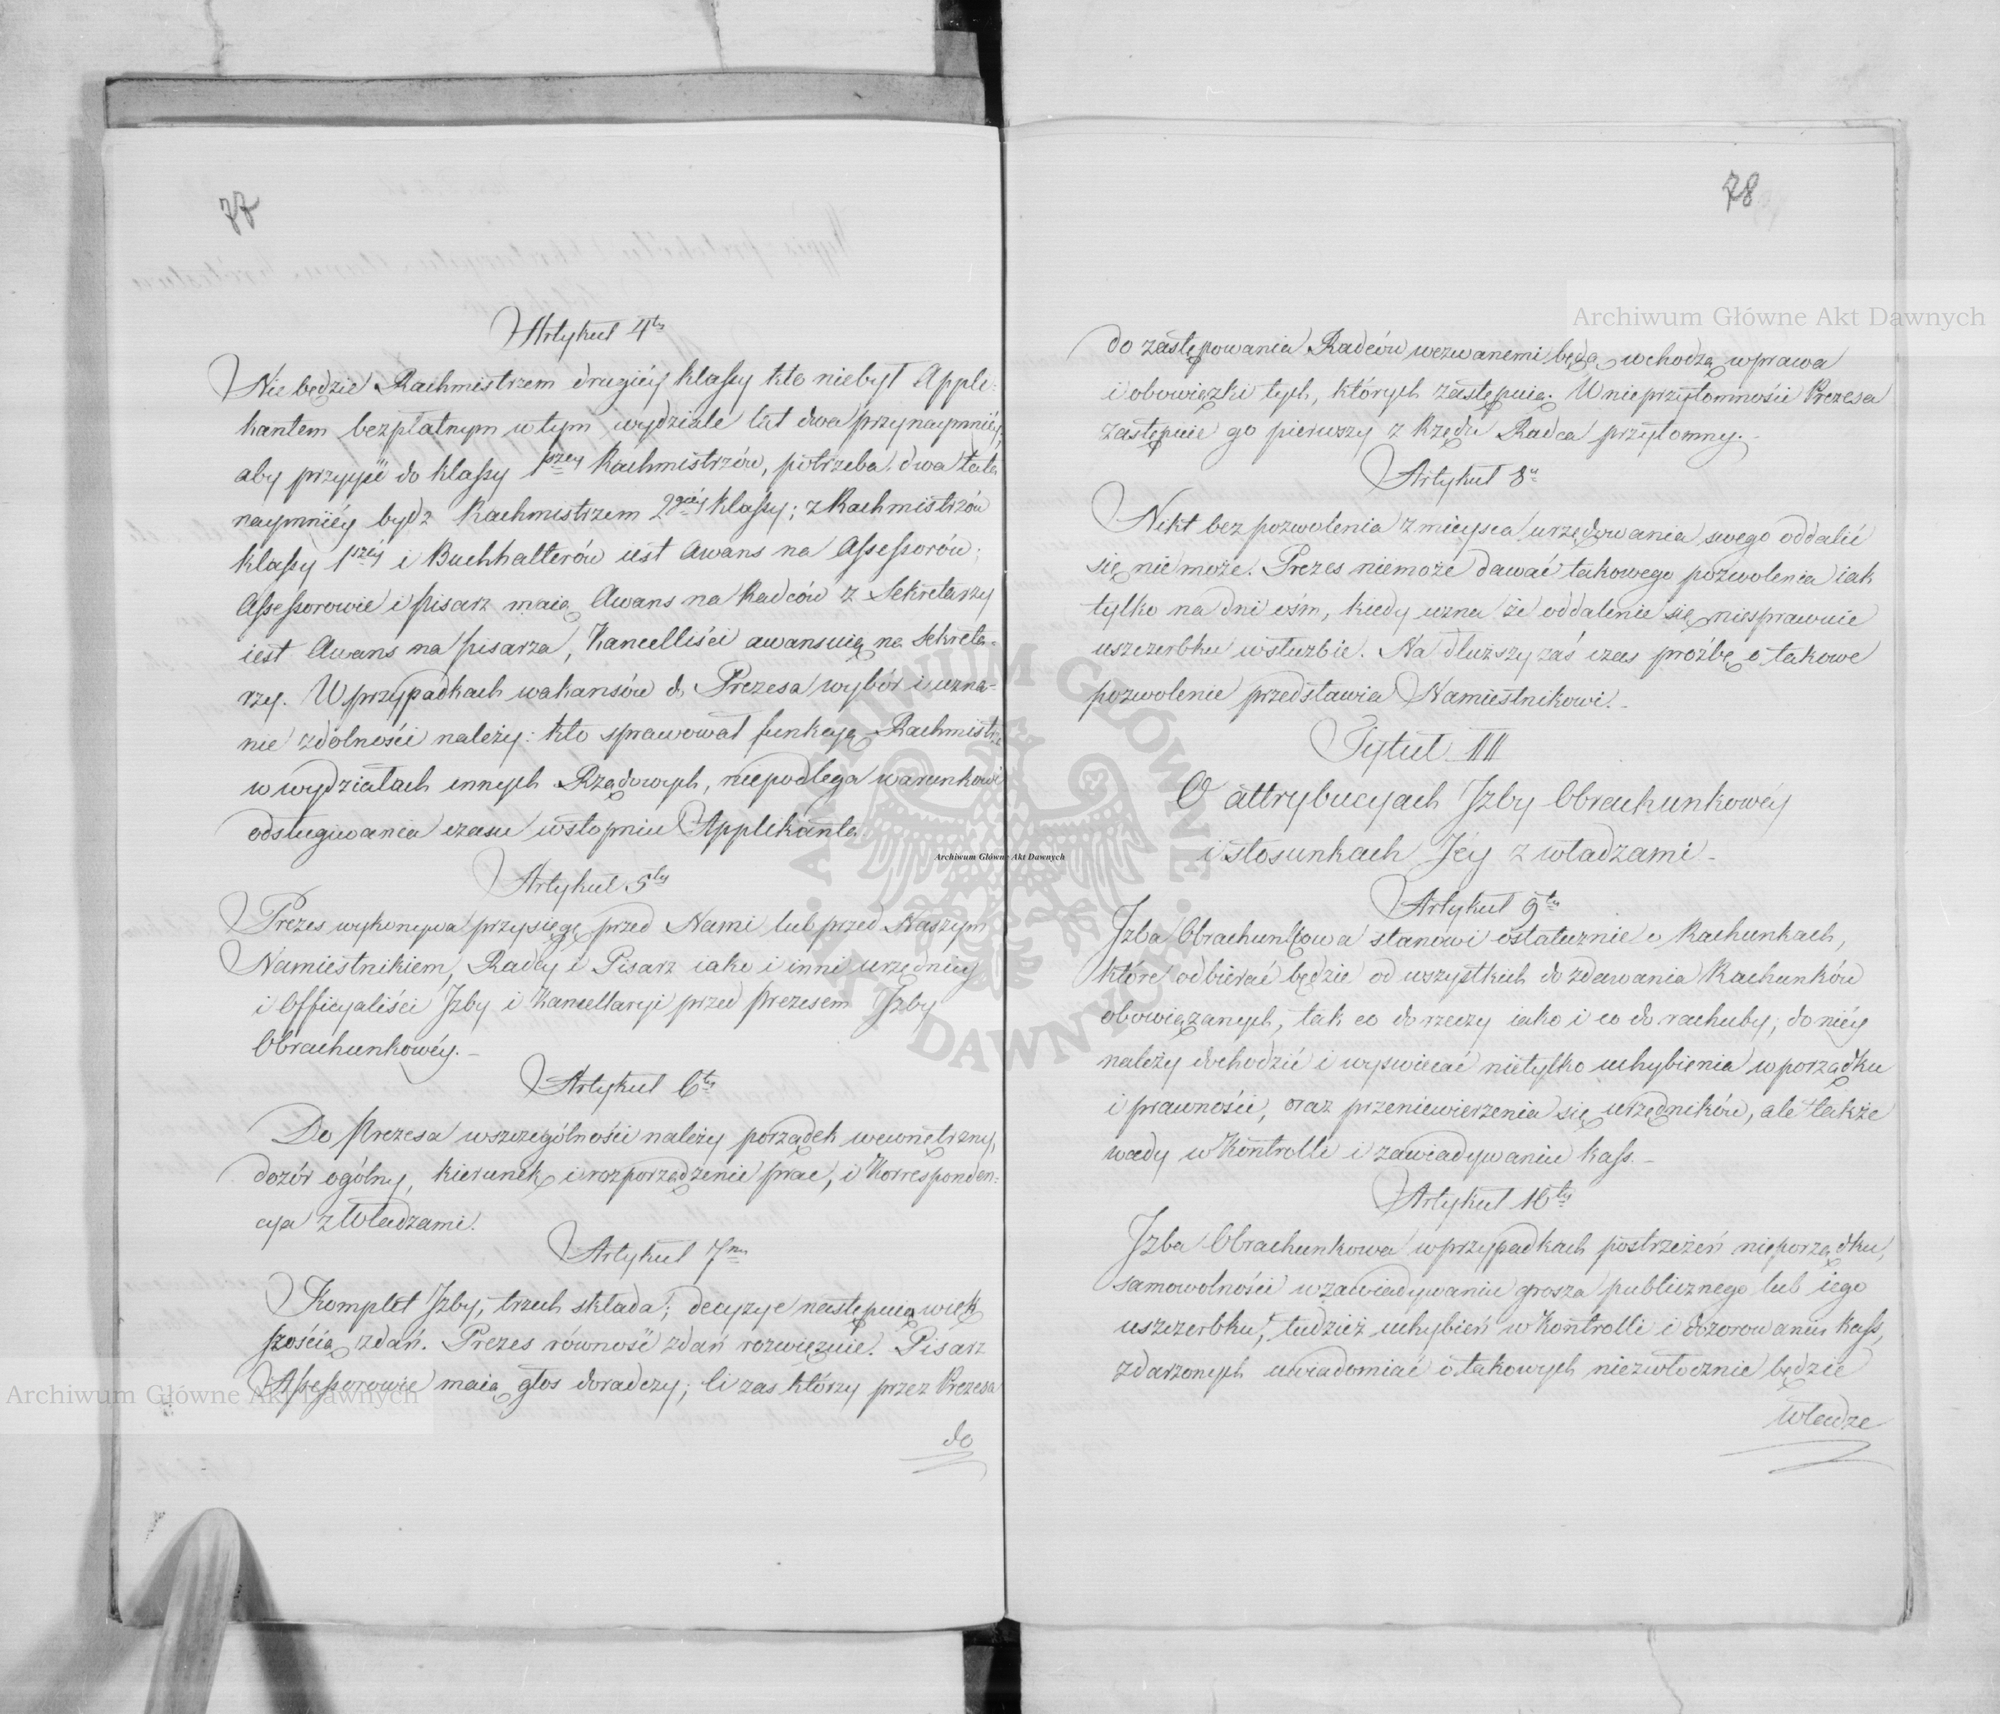 77
Artykuł 4ty
Nie będzie Rachmistrzem drugiéy klassy kto niebył Appli-
kantem bezpłatnym w tym wydziale lat dwa przynaymniéy,
aby przyyść do klassy 1szey Rachmistrzów, potrzeba dwa lata
naymniéy bydź Rachmistrzem 2giéy klassy; z Rachmistrzów
klassy 1széy i Buchhalterów iest Awans na Assessorów;
Assessorowie i pisarz maią Awans na Radców z Sekretarzy
iest Awans na pisarza, Kancelliści awansuią na Sekreta-
rzy. W przypadkach wakansów do Prezesa wybór i uzna-
nie zdolności należy: kto sprawował funkcyą Rachmistrza
w wydziałach innych Rządowych, niepodlega warunkowi
odsługiwania czasu w stopniu Applikanta
Artykuł 5ty
Prezes wykonywa przysięgę przed Nami lub przed Naszym
Namiestnikiem, Radcy i Pisarz iako i inni urzędnicy
i Officyaliści Izby i Kancellaryi przed Prezesem Izby
Obrachunkowéy.-
Artykuł 6ty
Do Prezesa w szczególności należy porządek wewnętrzny,
dozór ogólny, kierunek i rozporządzenie prac, i Korresponden-
cya z Władzami.
Artykuł 7my
Komplet Izby, trzech składa; decyzye następuią więk
szością zdań. Prezes równość zdań rozwięzuie. Pisarz
Assessorowie maią głos doradczy; ci zaś którzy przez Prezesa
do
78
do zastępowania Radców wezwanemi będą, wchodzą w prawa
i obowiązki tych, których zastępuią. W nieprzytomności Prezesa
zastępuie go pierwszy z Rzędu Radca przytomny.-
Artykuł 8y
Nikt bez pozwolenia z mieysca urzędowania swego oddalić
się nie może. Prezes niemoże dawać takowego pozwolenia iak
tylko na dni ośm, kiedy uzna że oddalenie się niesprawuie
uszczerbku w służbie. Na dłuższy zaś czas prożbę o takowe
pozwolenie przedstawia Namiestnikowi.-
Tytuł III
O attrybucyach Izby Obrachunkowéy
i stosunkach Jéy z władzami-
Artykuł 9ty
Izba Obrachunkowa stanowi ostatecznie o Rachunkach,
które odbierać będzie od wszystkich do zdawania Rachunków
obowiązanych, tak co do rzeczy iako i co do rachuby; do niéy
należy dochodzić i wyswiecać nietylko uchybienia w porządku
i prawności, oraz przeniewierzenia się urzędników, ale także
wady w Kontrolli i zawiadywaniu kass.-
Artykuł 10ty
Izba Obrachunkowa w przypadkach postrzeżeń nieporządku,
samowolności w zawiadywaniu grosza publicznego lub iego
uszczerbku, tudzież uchybień w Kontrolli i dozorowaniu kass,
zdarzonych uwiadomiać o takowych niezwłocznie będzie
władze
Archiwum Główne Akt Dawnych
Archiwum Główne Akt Dawnych
Archiwum Główne Akt Dawnych
ARCHIWUM GŁÓWNE AKT DAWNYCH